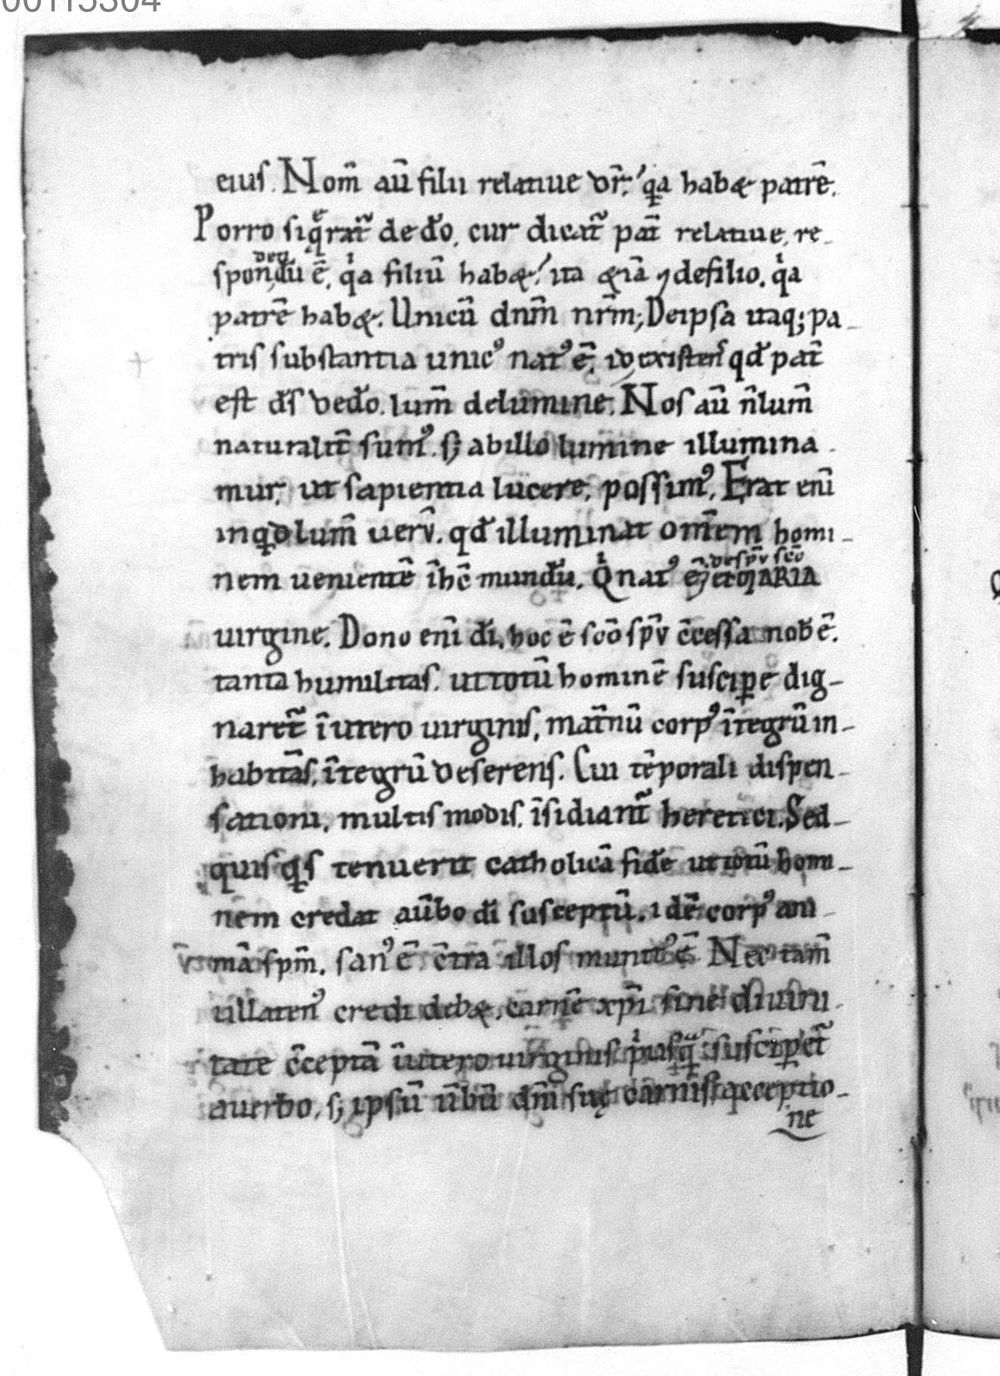 00115304
eius. Nom̄ aū filii relatiue dr̄; q̣a habæ patrē.
Porro siq̄rat᷑ dedo, cur dicat᷑ pat̄ relatiue, re-
spondū ē, qͥa filiū habæ; ita &iā ⁊ defilio. qͥa
patrē habæ. Unicū dnm̄ nrm̄; Deipsa itaq; pa-
tris substantia unicꝰ natꝰ ē, qd̄ pat̄
est ds̄ dedo. lum̄ delumine. Nos aū n̄ lum̄
naturalit̄ sumꝰ. s; abillo lumine illumina-
mur, ut sapientia lucere, possimꝰ. Erat eni
inq̄d lum̄ uerū. qd̄ illuminat omēm homi-
nem uenientē ī hc̄ mundū. Qͥ natꝰ ē
de spū scō
et MARIA
uirgine. Dono eni dī, hoc ē scō spū ccessa nob̄ ē.
tanta humilitas. ut totū hominē suscipe dig-
naret᷑ ī utero uirginis, mat̄nū corpꝰ ītegrū in-
habitās, ītegrū deserens. Cui tēporali dispen-
sationi, multis modis, īsidiant᷑ heretici. Sed
quisqs tenuerit catholicā fidē ut totū homi-
nem credat aūbo dī susceptū. idē corpꝰ ani-
mā spm̄. sanꝰ ē cīra illos munitꝰ ē. Nec tam̄
illatenꝰ credi debæ, carnē xpi sine diuini-
tate cceptā ī utero uirginis pͥusqᵃ suscipet᷑
auerbo, s; ipsū ūbū dnī suę carnis acceptio-
ne